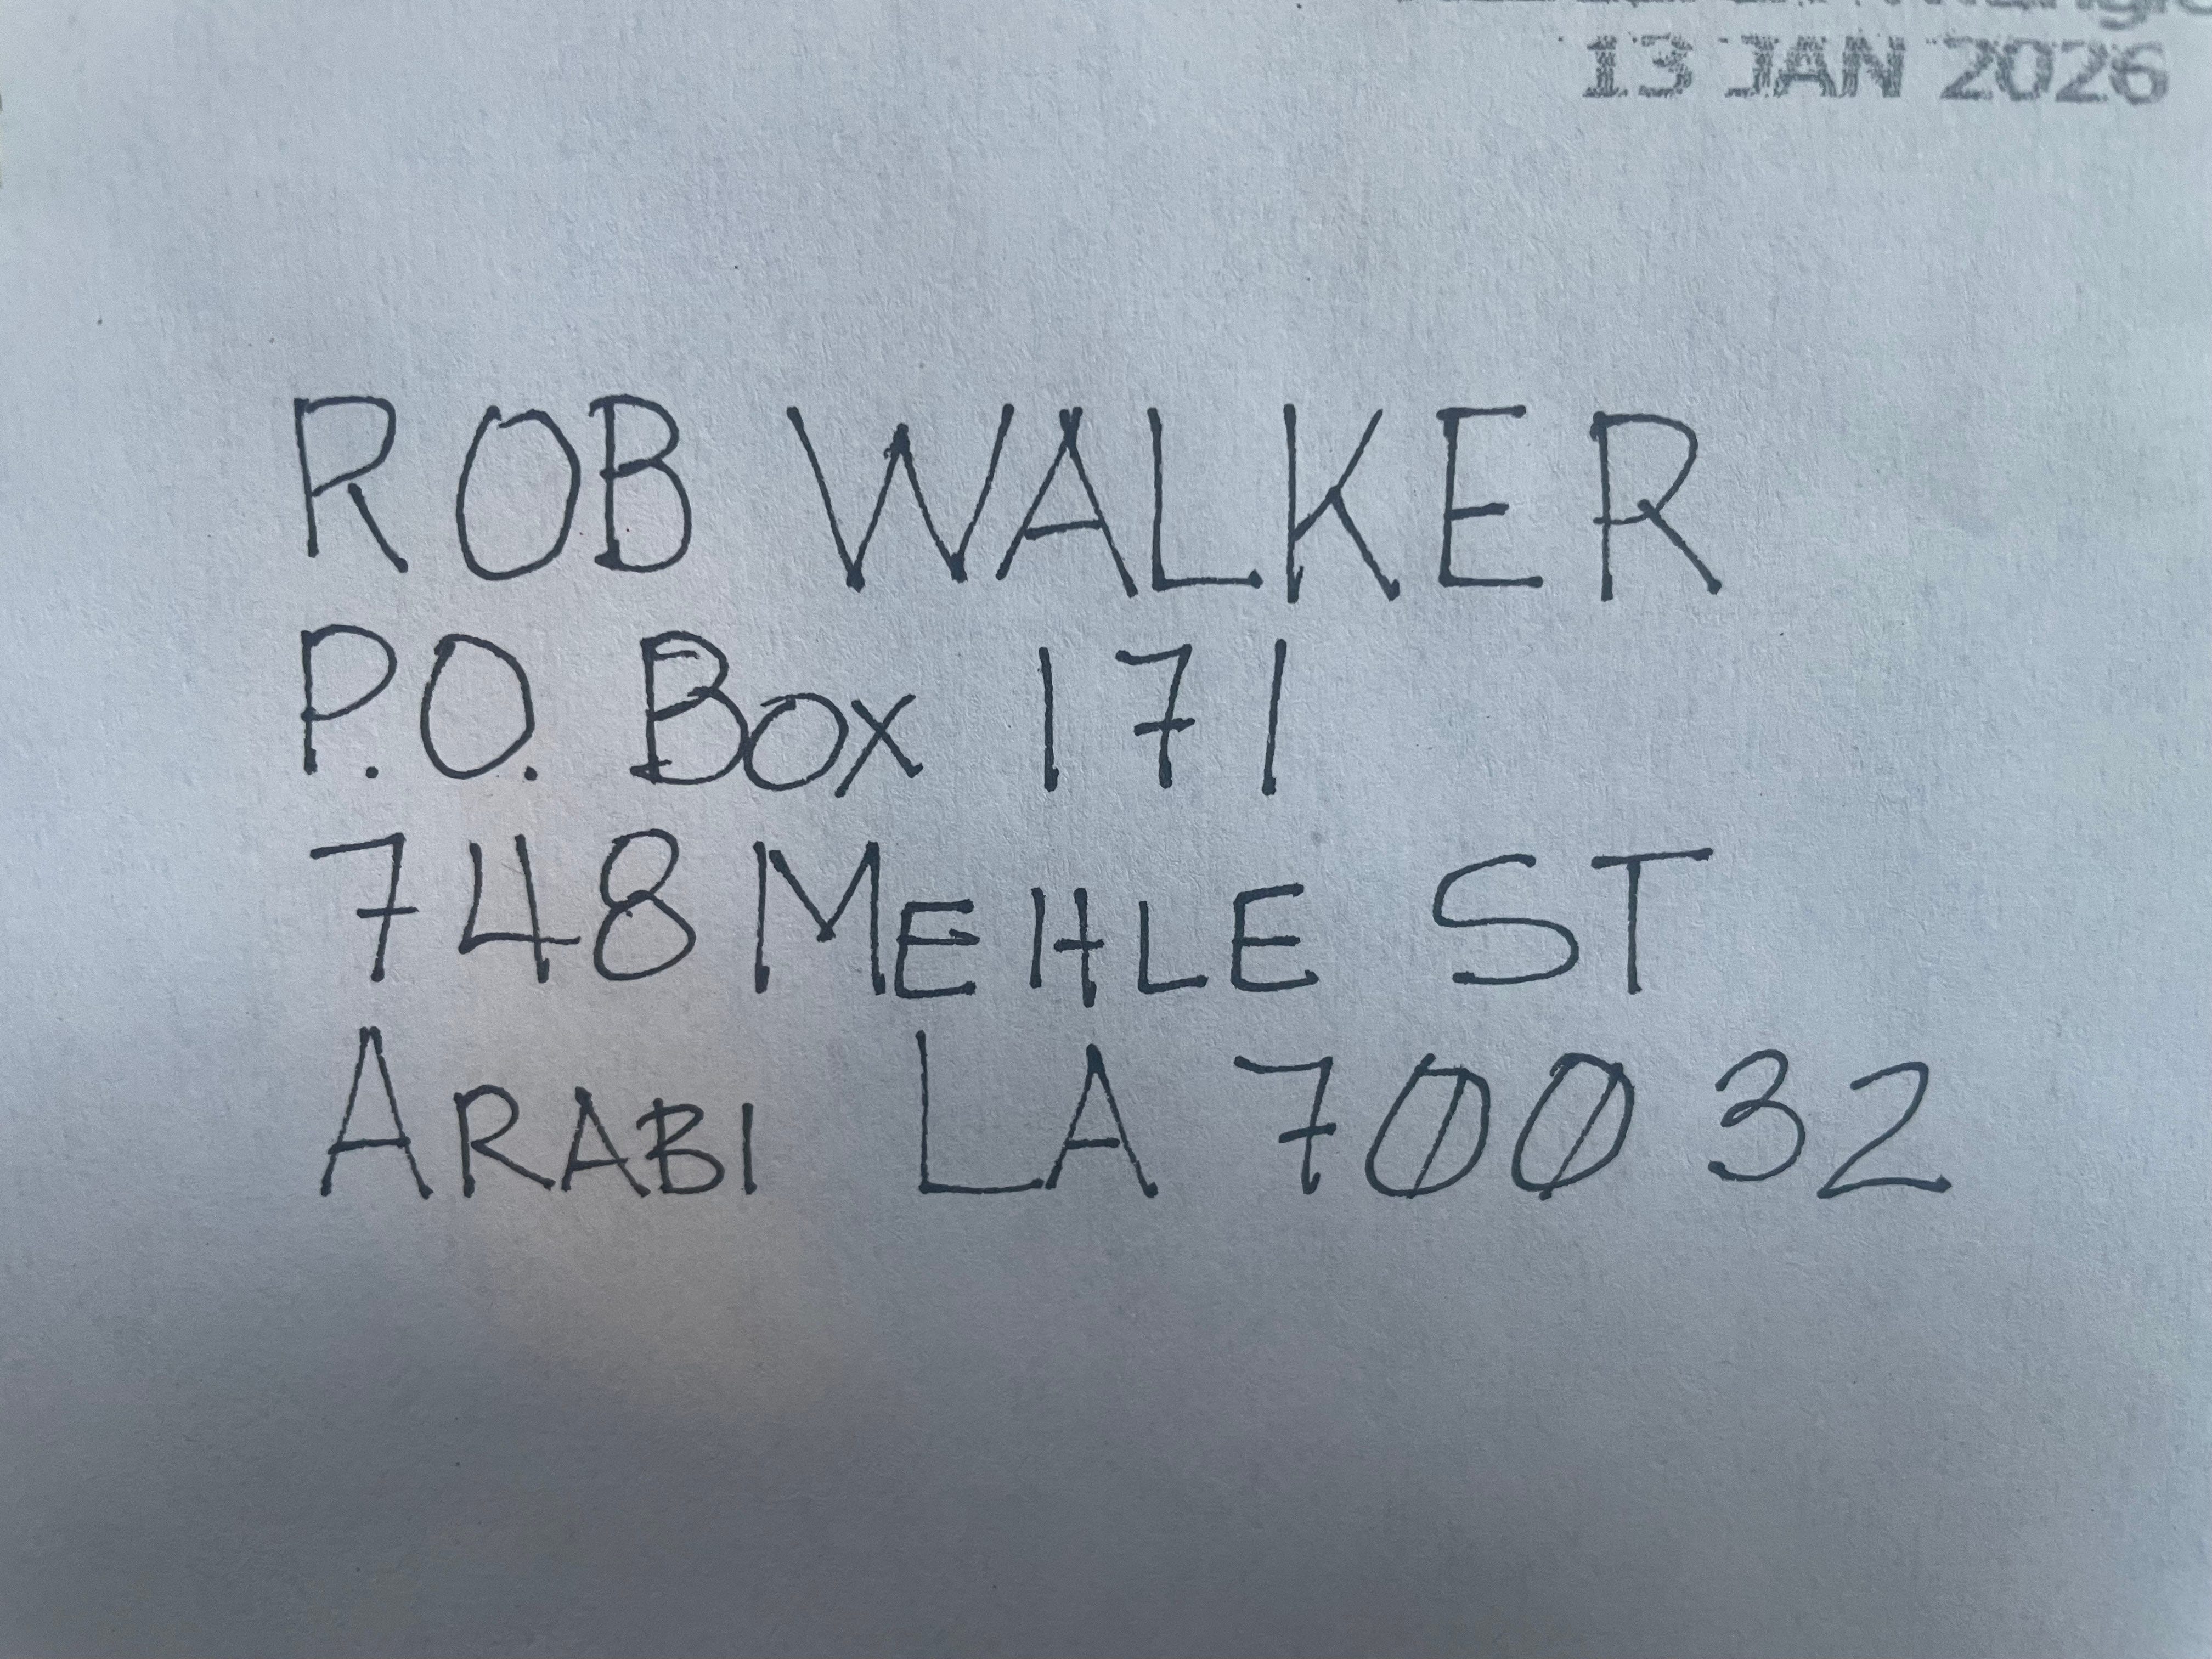 13 JAN 2026
ROB WALKER
P.O. Box 171
748 MEHLE ST
ARABI LA 70032